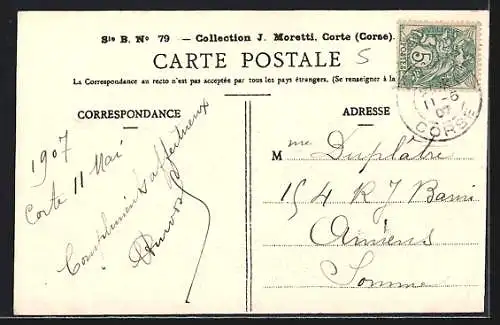 Sle B. No 79 — Collection J. Moretti, Corte (Corse).
CARTE POSTALE
5
La Correspondance au recto n'est pas acceptée par tous les pays étrangers. (Se renseigner à la
CORRESPONDANCE
1907
Corte 11 Mai
Compliments affectueux
ADRESSE
Mme Duplâtre
154 R J Barni
Amiens
Somme
5
CORSE